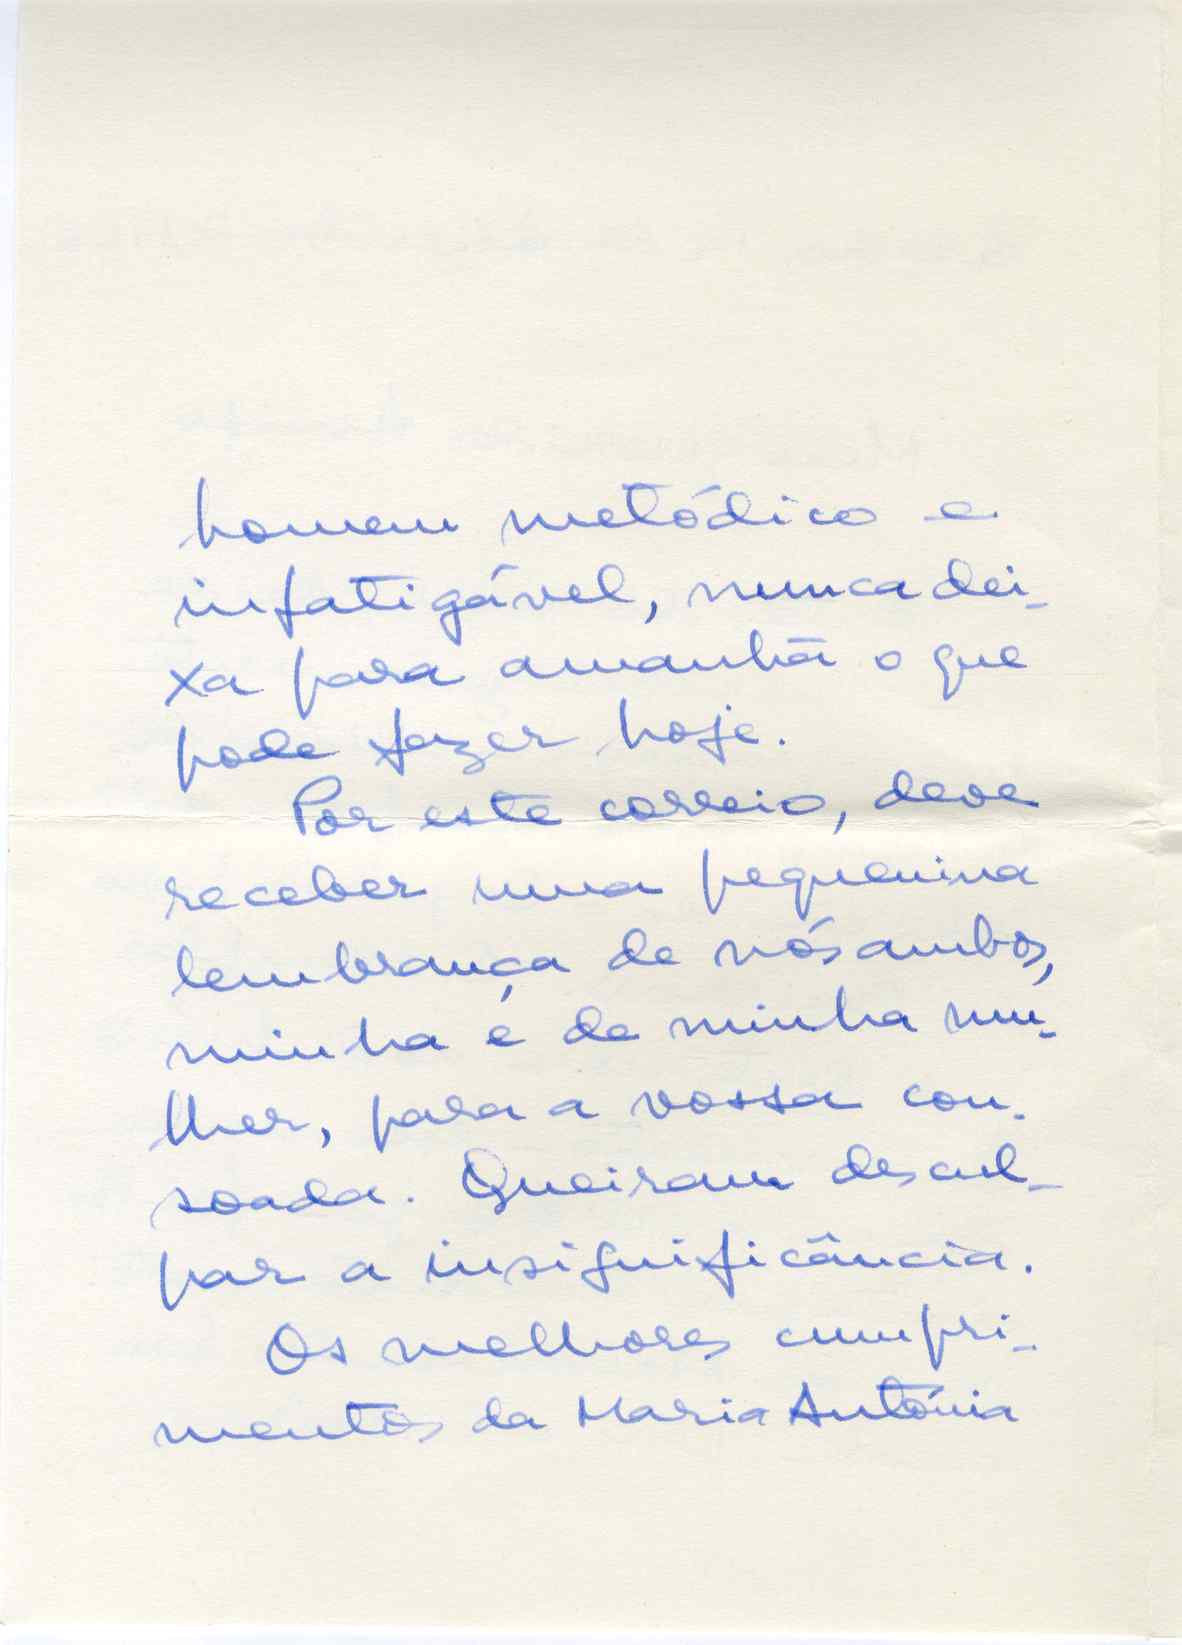 homem metódico e
infatigável, nunca dei-
xa para amanhã o que
pode fazer hoje.
Por este correio, deve
receber uma pequenina
lembrança de nós ambos,
minha e de minha mu-
lher, para a vossa con-
soada. Queiram descul-
par a insignificância.
Os melhores cumpri-
mentos da Maria Antónia